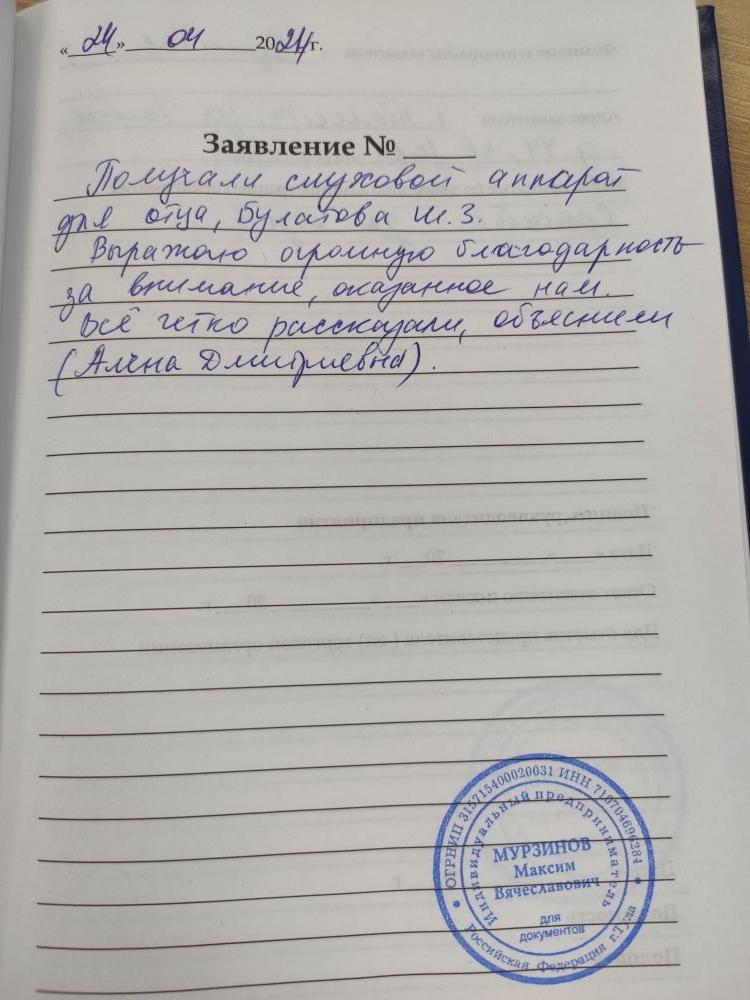 «24» 04 2024 г.
Заявление № ______
Получали слуховой аппарат
для отца, Булатова Ш.З.
Выражаю огромную благодарность
за внимание, оказанное нам.
Всё четко рассказали, объяснили
(Алёна Дмитриевна).
ОГРНИП 315715400020031 ИНН 710704696284
Индивидуальный предприниматель
МУРЗИНОВ
Максим
Вячеславович
для
документов
Российская Федерация г.Тула